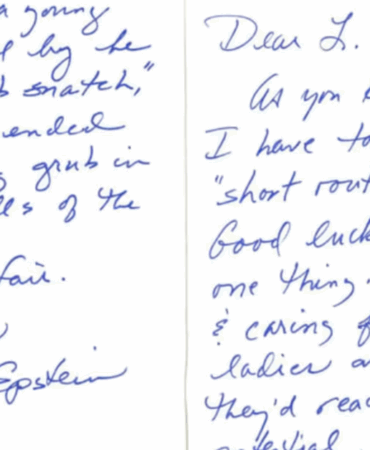 a young
by he
snatch,"
ended
grub in
of the
fair.
Epstein
Dear L.
As you
I have to
"short rout
Good luck
one thing
& caring f
ladies a
they'd reac
potential